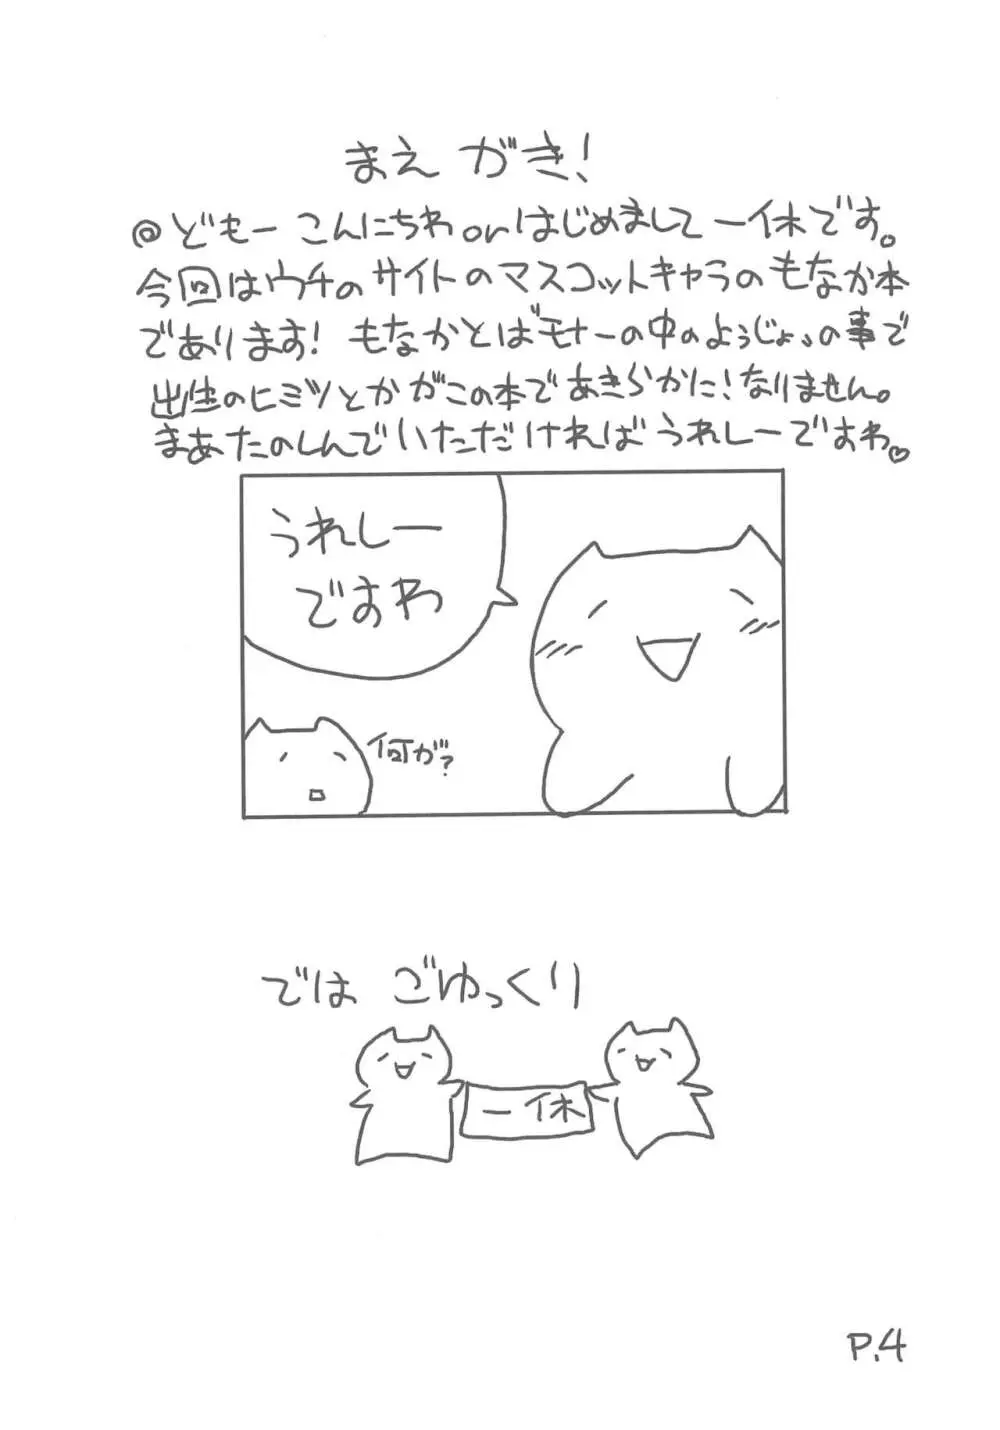 まえ がき!
@どもー こんにちわorはじめまして 一休です。
今回はウチのサイトのマスコットキャラのもなか本
であります! もなかとはモナーの中のようじょ、の事で
出生のヒミツとかがこの本であきらかに!なりません。
まあたのしんでいただければうれしーですわ♡
うれしー
ですわ
何が?
では ごゆっくり
一休
P.4